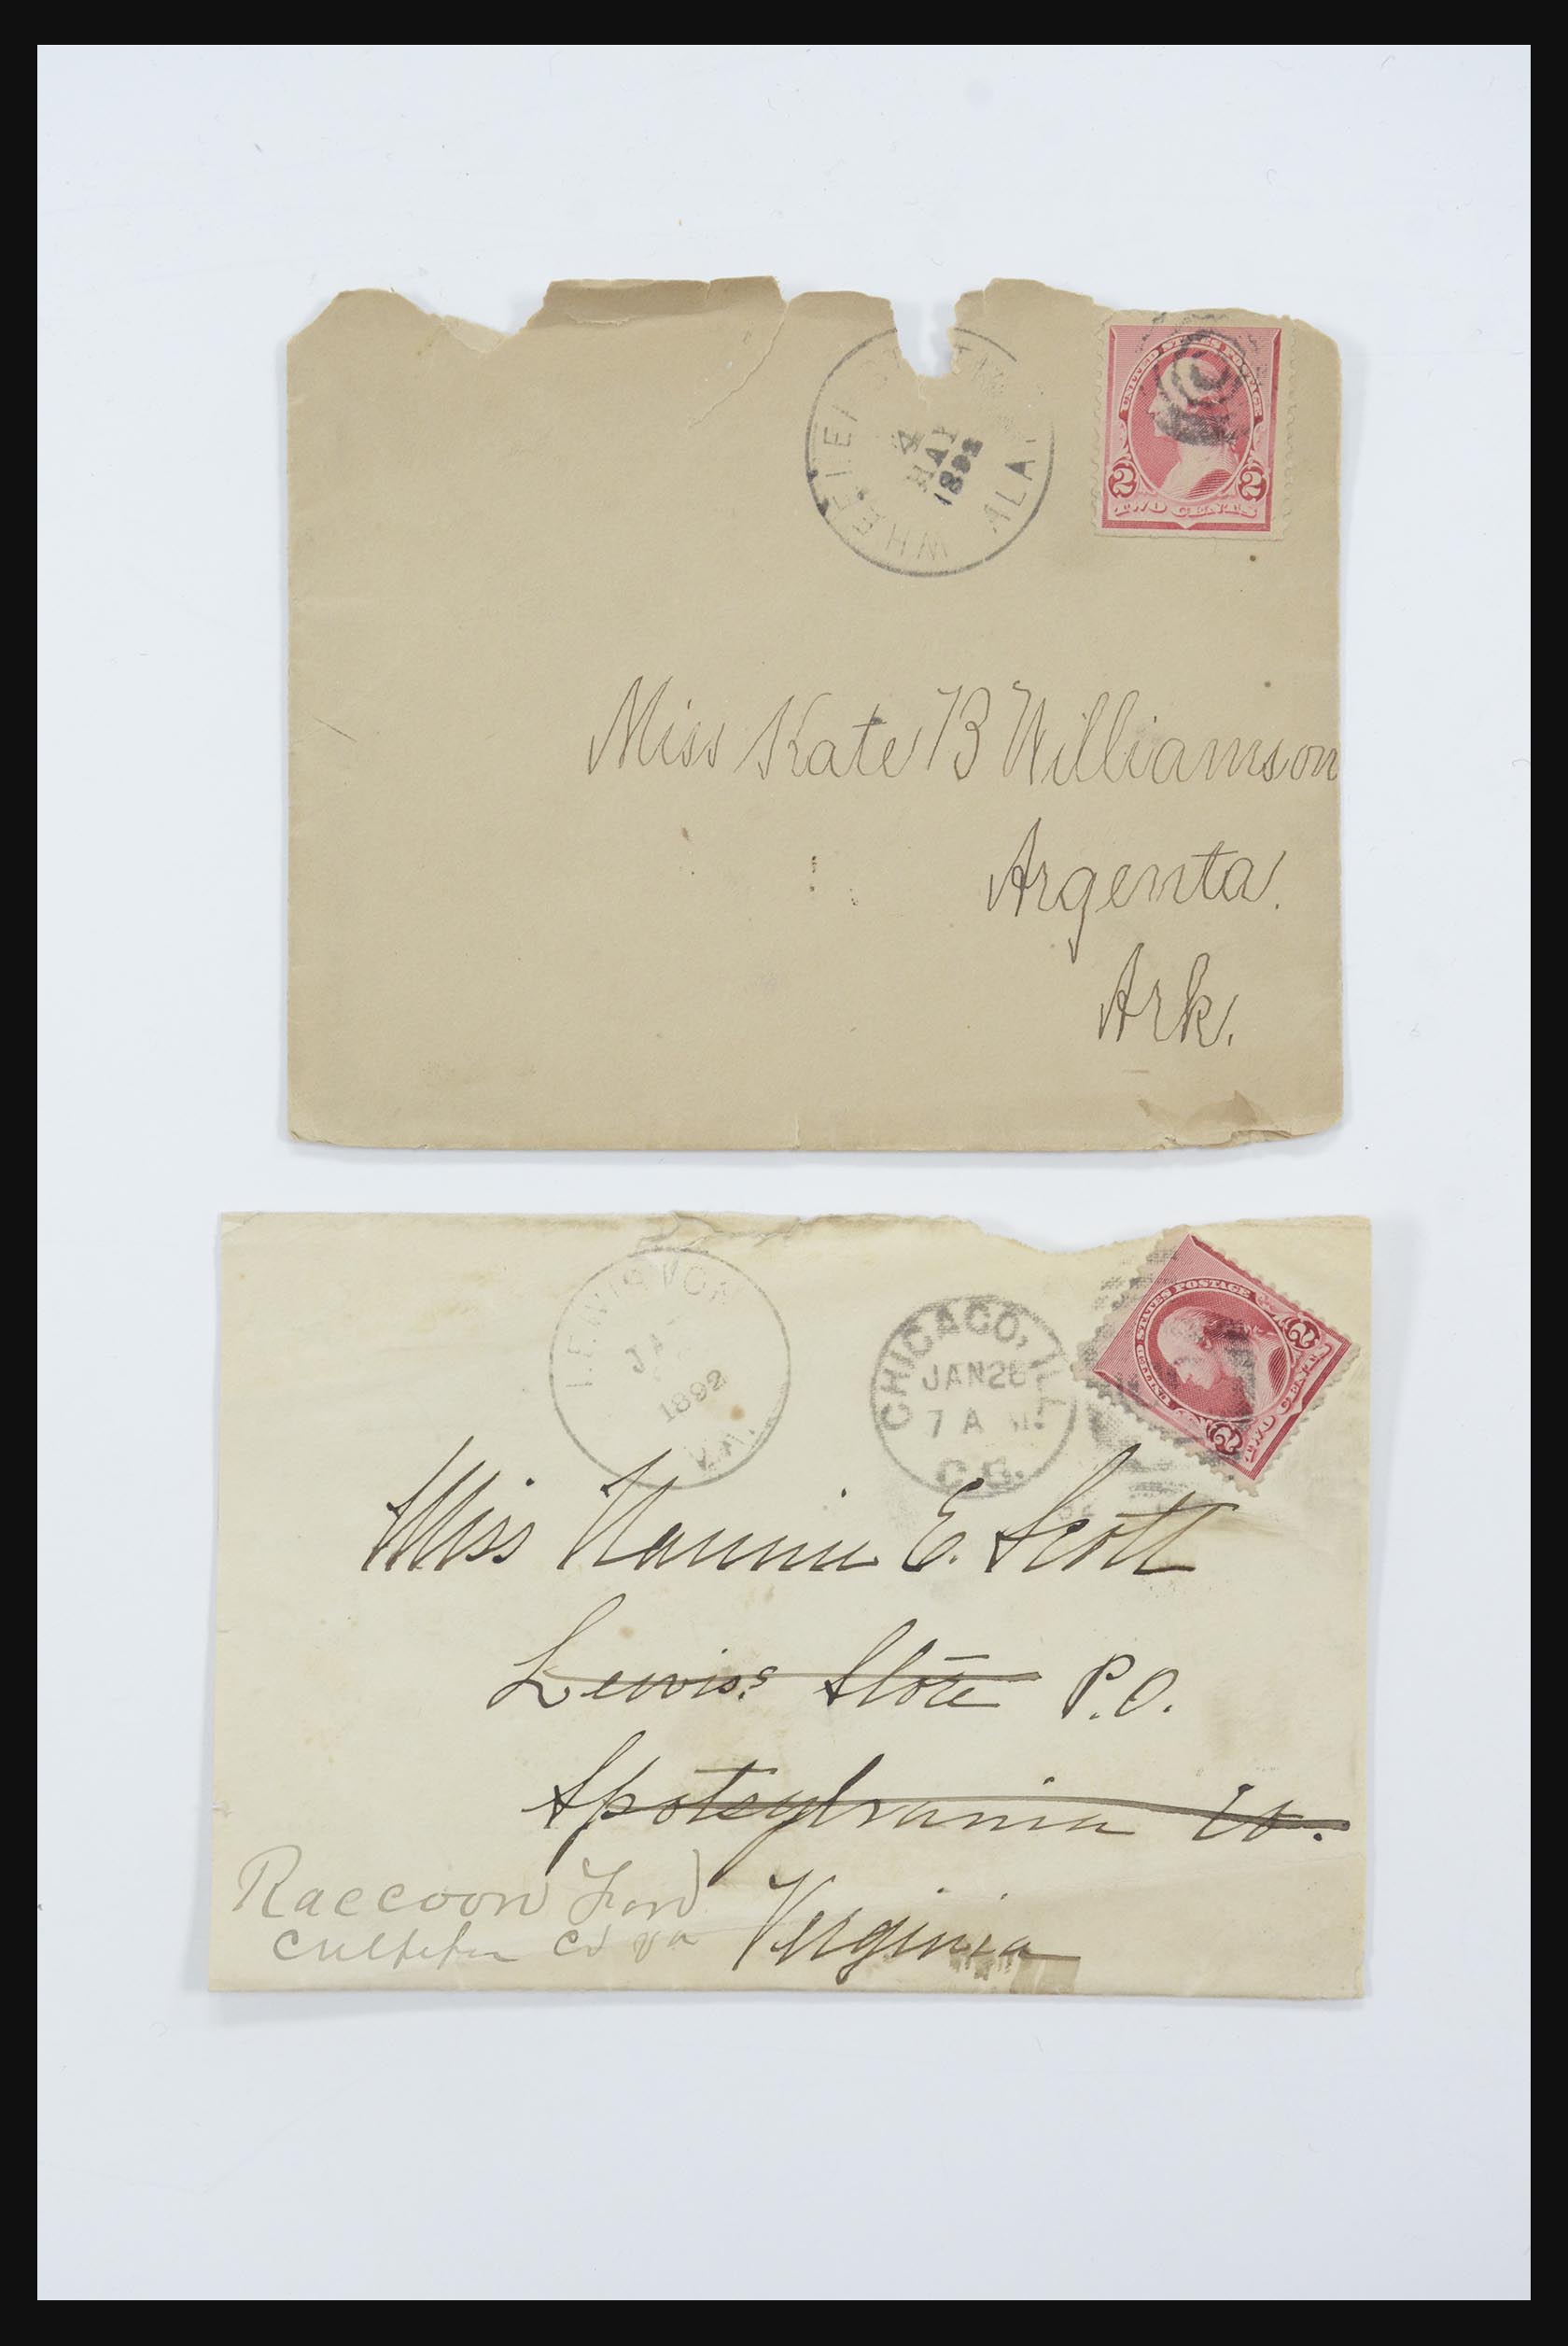 ALA.
MAY
1892
UNITED STATES POSTAGE
2 2
TWO CENTS
Miss Kate B Williamson
Argenta.
Ark.
1892
VA.
CHICAGO, ILL.
JAN 26
7 A M
UNITED STATES POSTAGE
2 2
TWO CENTS
Miss Nannie E. Scott
Lewis's Store P.O.
Spotsylvania Co.
Virginia
Raccoon Ford
Culpeper Co Va